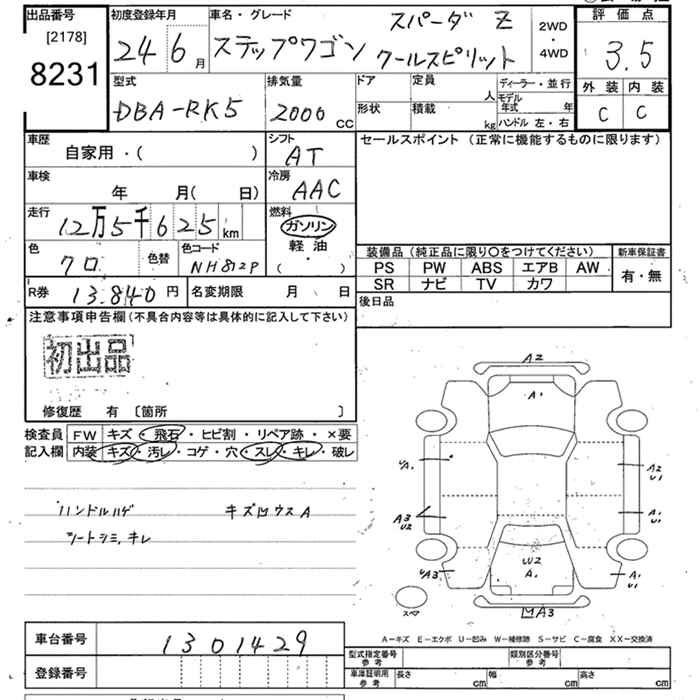 出品番号
[2178]
8231
初度登録年月
24 6 月
車名・グレード
スパーダ Z
ステップワゴン クールスピリット
2WD
・
4WD
評価点
3.5
外装 内装
C C
型式
DBA-RK5
排気量
2000 cc
ドア
定員
人
形状
積載
kg
ディーラー・並行
モデル年式 年
ハンドル 左・右
車歴
自家用・( )
シフト
AT
セールスポイント (正常に機能するものに限ります)
車検
年 月( 日)
冷房
AAC
走行
12万5千625 km
燃料
ガソリン
軽油
( ・ )
色
クロ
色替
色コード
NH812P
装備品(純正品に限り○をつけてください)
新車保証書
PS PW ABS エアB AW
有・無
SR ナビ TV カワ
R券
13.840 円
名変期限 月 日
後日品
注意事項申告欄(不具合内容等は具体的に記入して下さい)
初出品
修復歴 有 〔箇所 〕
検査員
記入欄
FW キズ・飛石・ヒビ割・リペア跡・×要
内装 キズ・汚レ・コゲ・穴・スレ・キレ・破レ
ハンドルハゲ キズ凹ウスA
シートシミ,キレ
A2
A1
A2
U1
A3
U2
A1
U1
U2
A1
A1
U1
凹A3
スペア
A-キズ E-エクボ U-凹み W-補修跡 S-サビ C-腐食 XX-交換済
車台番号
1301429
登録番号
型式指定番号
参考
類別区分番号
参考
車庫証明用
参考
長さ cm
幅 cm
高さ cm